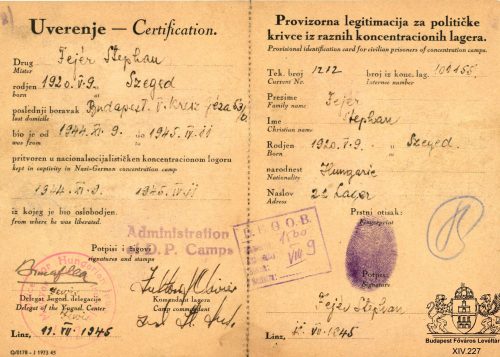 Uverenje — Certification.
Drug Fejér Stephan
Mister
rodjen 1920. V. 9. u Szeged
Born in
poslednji boravak Budapest. V.
last domicile
bio je od 1944. XI. 9. do 1945. IV. 11
was from to
pritvoren u nacionalsocijalističkom koncentracionom logoru
kept in captivity in Nazi-German concentration camp
1944. XI. 9. 1945. IV. 11
iz kojeg je bio oslobodjen.
from where he was liberated.
Administration
D.P. Camps
Potpisi i žigovi
signatures and stamps
Delegat Jugosl. delegacije
Delegat of the Yugosl. Center
Komendant lagera
Camp commandant
Linz, VII 1945
Q/0170 - J 1973 45
Provizorna legitimacija za političke
krivce iz raznih koncentracionih lagera.
Provisional identification card for civilian prisoners of concentration camps.
Tek. broj 1212 broj iz konc. lag.
Current Nr. Internee number
Prezime Fejér
Family name
Ime Stephan
Christian name
Rodjen 1920. V. 9. u Szeged
Born in
narodnost Hungaric
Nationality
Naslov 22 Lager
Adress
Prstni otisak:
Fingerprint
D.E.G.O.B.
VIII 9
Potpis:
Signature
Fejér Stephan
Linz, VII. 1945
Budapest Főváros Levéltára
XIV.227